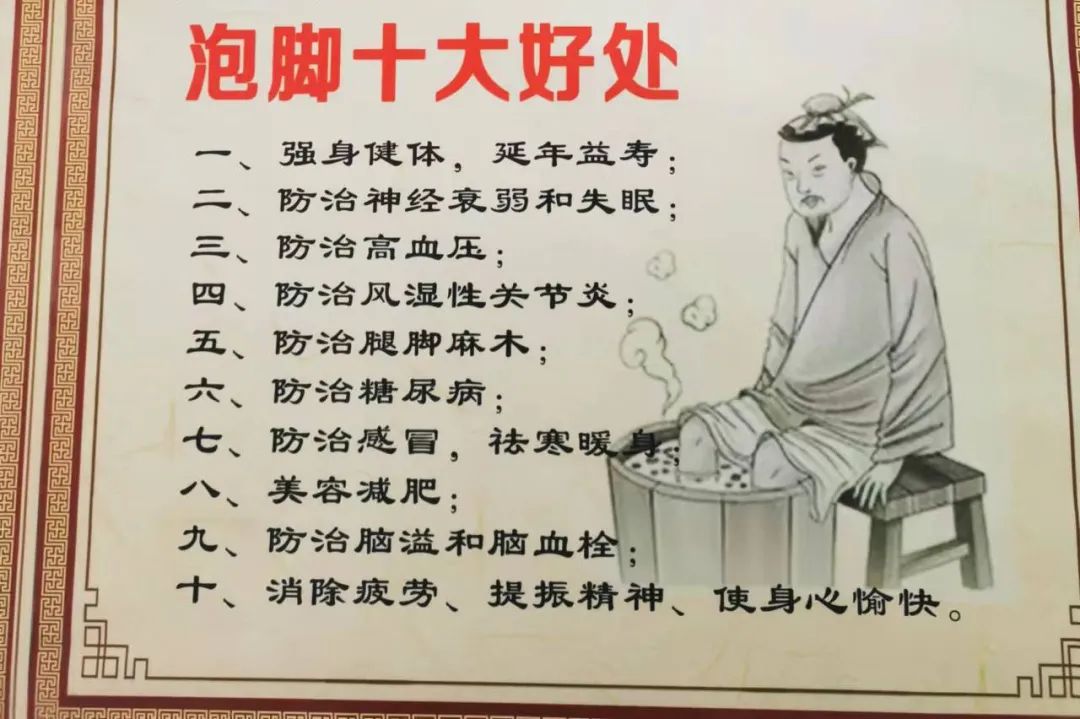 泡脚十大好处
一、强身健体，延年益寿；
二、防治神经衰弱和失眠；
三、防治高血压；
四、防治风湿性关节炎；
五、防治腿脚麻木；
六、防治糖尿病；
七、防治感冒，祛寒暖身；
八、美容减肥；
九、防治脑溢和脑血栓；
十、消除疲劳、提振精神、使身心愉快。